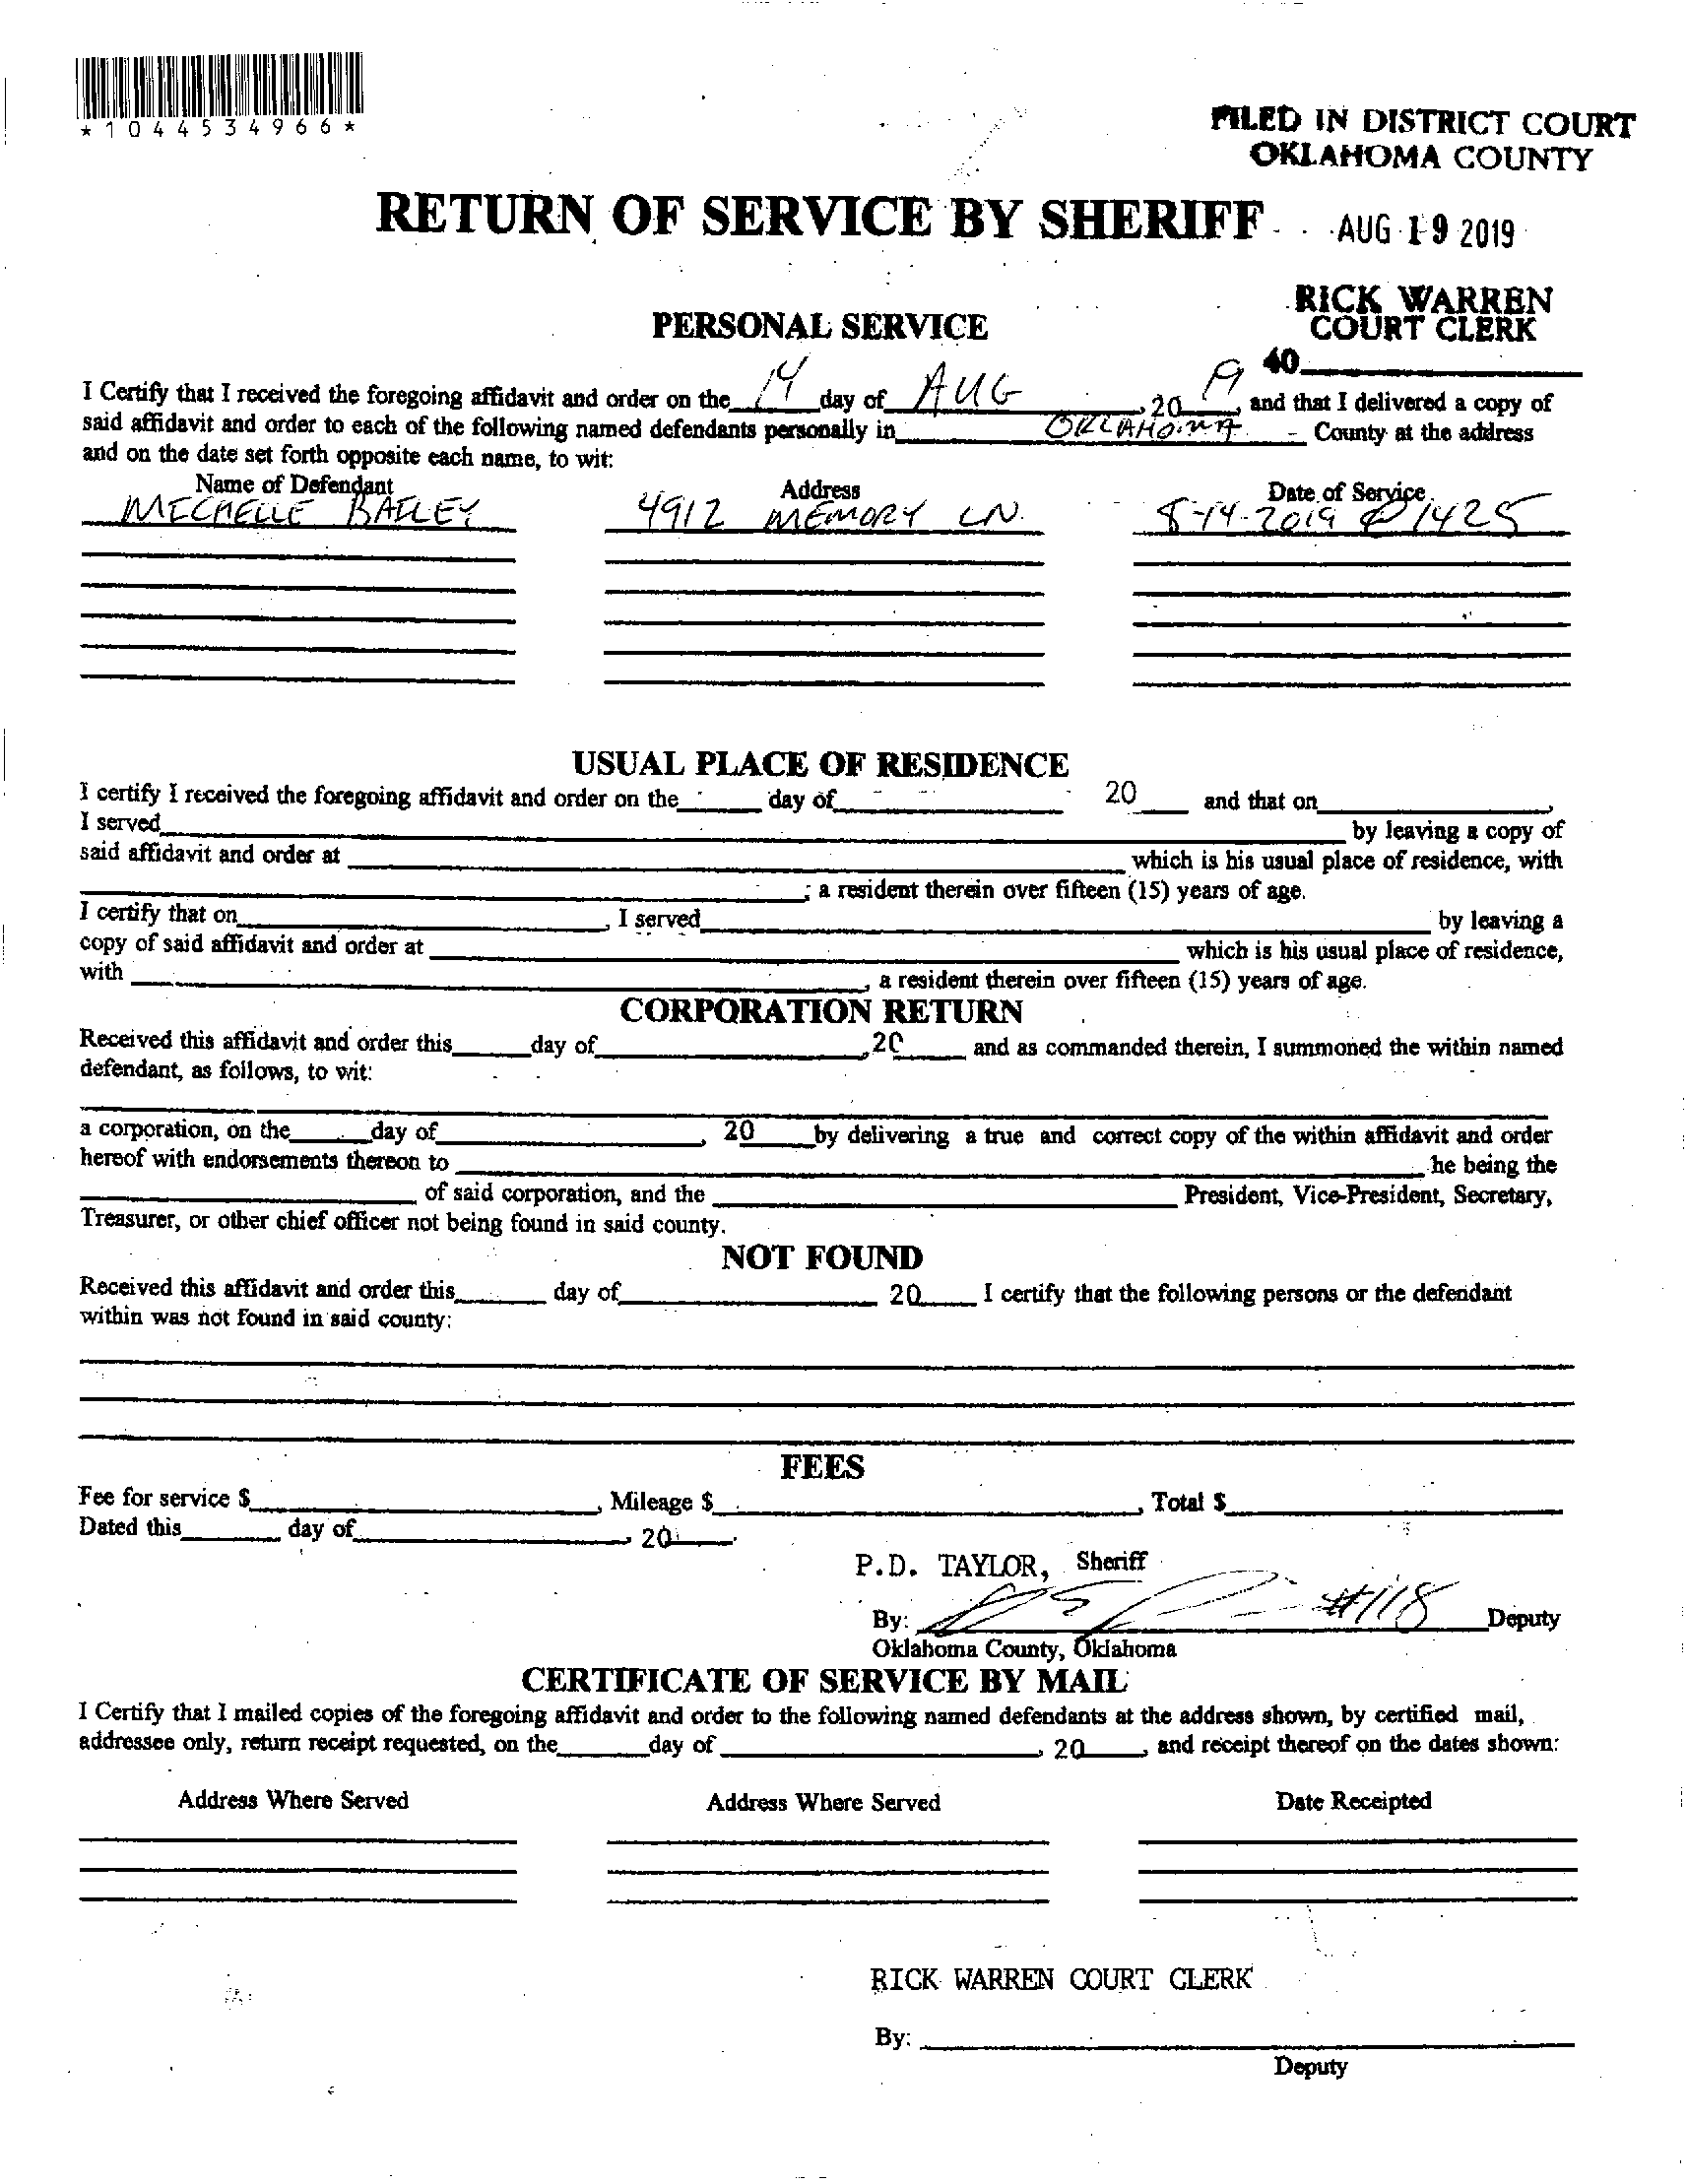 *1044534966*
FILED IN DISTRICT COURT
OKLAHOMA COUNTY
RETURN OF SERVICE BY SHERIFF
AUG 19 2019
RICK WARREN
COURT CLERK
PERSONAL SERVICE
40
I Certify that I received the foregoing affidavit and order on the 14 day of AUG, 20 19, and that I delivered a copy of
said affidavit and order to each of the following named defendants personally in OKLAHOMA County at the address
and on the date set forth opposite each name, to wit:
Name of Defendant Address Date of Service
MECHELLE BAILEY 4912 MEMORY LN. 8-14-2019 @ 1425
USUAL PLACE OF RESIDENCE
I certify I received the foregoing affidavit and order on the ____ day of ____ 20____ and that on ____,
I served ____ by leaving a copy of
said affidavit and order at ____ which is his usual place of residence, with
____; a resident therein over fifteen (15) years of age.
I certify that on ____, I served ____ by leaving a
copy of said affidavit and order at ____ which is his usual place of residence,
with ____, a resident therein over fifteen (15) years of age.
CORPORATION RETURN
Received this affidavit and order this ____ day of ____, 20____ and as commanded therein, I summoned the within named
defendant, as follows, to wit:
a corporation, on the ____ day of ____, 20____ by delivering a true and correct copy of the within affidavit and order
hereof with endorsements thereon to ____ he being the
____ of said corporation, and the ____ President, Vice-President, Secretary,
Treasurer, or other chief officer not being found in said county.
NOT FOUND
Received this affidavit and order this ____ day of ____ 20____ I certify that the following persons or the defendant
within was not found in said county:
FEES
Fee for service $____, Mileage $____, Total $____
Dated this ____ day of ____, 20____.
P.D. TAYLOR, Sheriff
By: #118 Deputy
Oklahoma County, Oklahoma
CERTIFICATE OF SERVICE BY MAIL
I Certify that I mailed copies of the foregoing affidavit and order to the following named defendants at the address shown, by certified mail,
addressee only, return receipt requested, on the ____ day of ____, 20____, and receipt thereof on the dates shown:
Address Where Served Address Where Served Date Receipted
RICK WARREN COURT CLERK
By: ____
Deputy